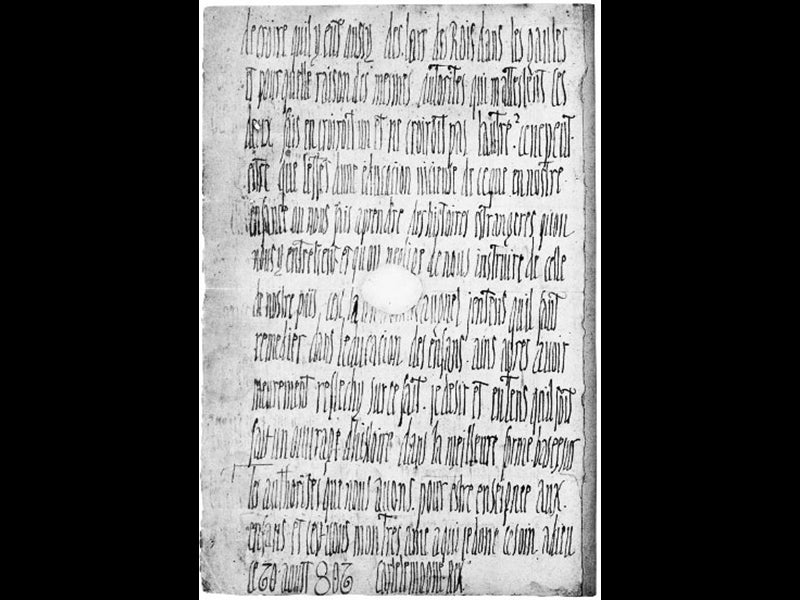 de croire quil y eut aussy des lart des Rois dans les gaules
et pour quelle raison des mesmes autorites qui mattestent ces
deux fais en croiroit un et ne croiroit pas lautre? ce ne peut
estre que leffes dune education niciente de ce que en nostre
enfance on nous fais aprendre des histoires etrangeres quion
nous y entretient et qu on neglige de nous instruire de celle
de nostre païs, cest la auquel jentens quil faut
remedier dans leducation des enfans. ains apres avoir
meurement reflechy sur ce fait. je desir et entens quil soit
fait un ouvrage dhistoire dans la meilleure forme basee sur
les authorites que nous avons. pour estre enseignee aux
enfans et cest vous mon tres ame a qui je done ce soin. adieu
ce 20 aoust 802 Carlemagne. Rex